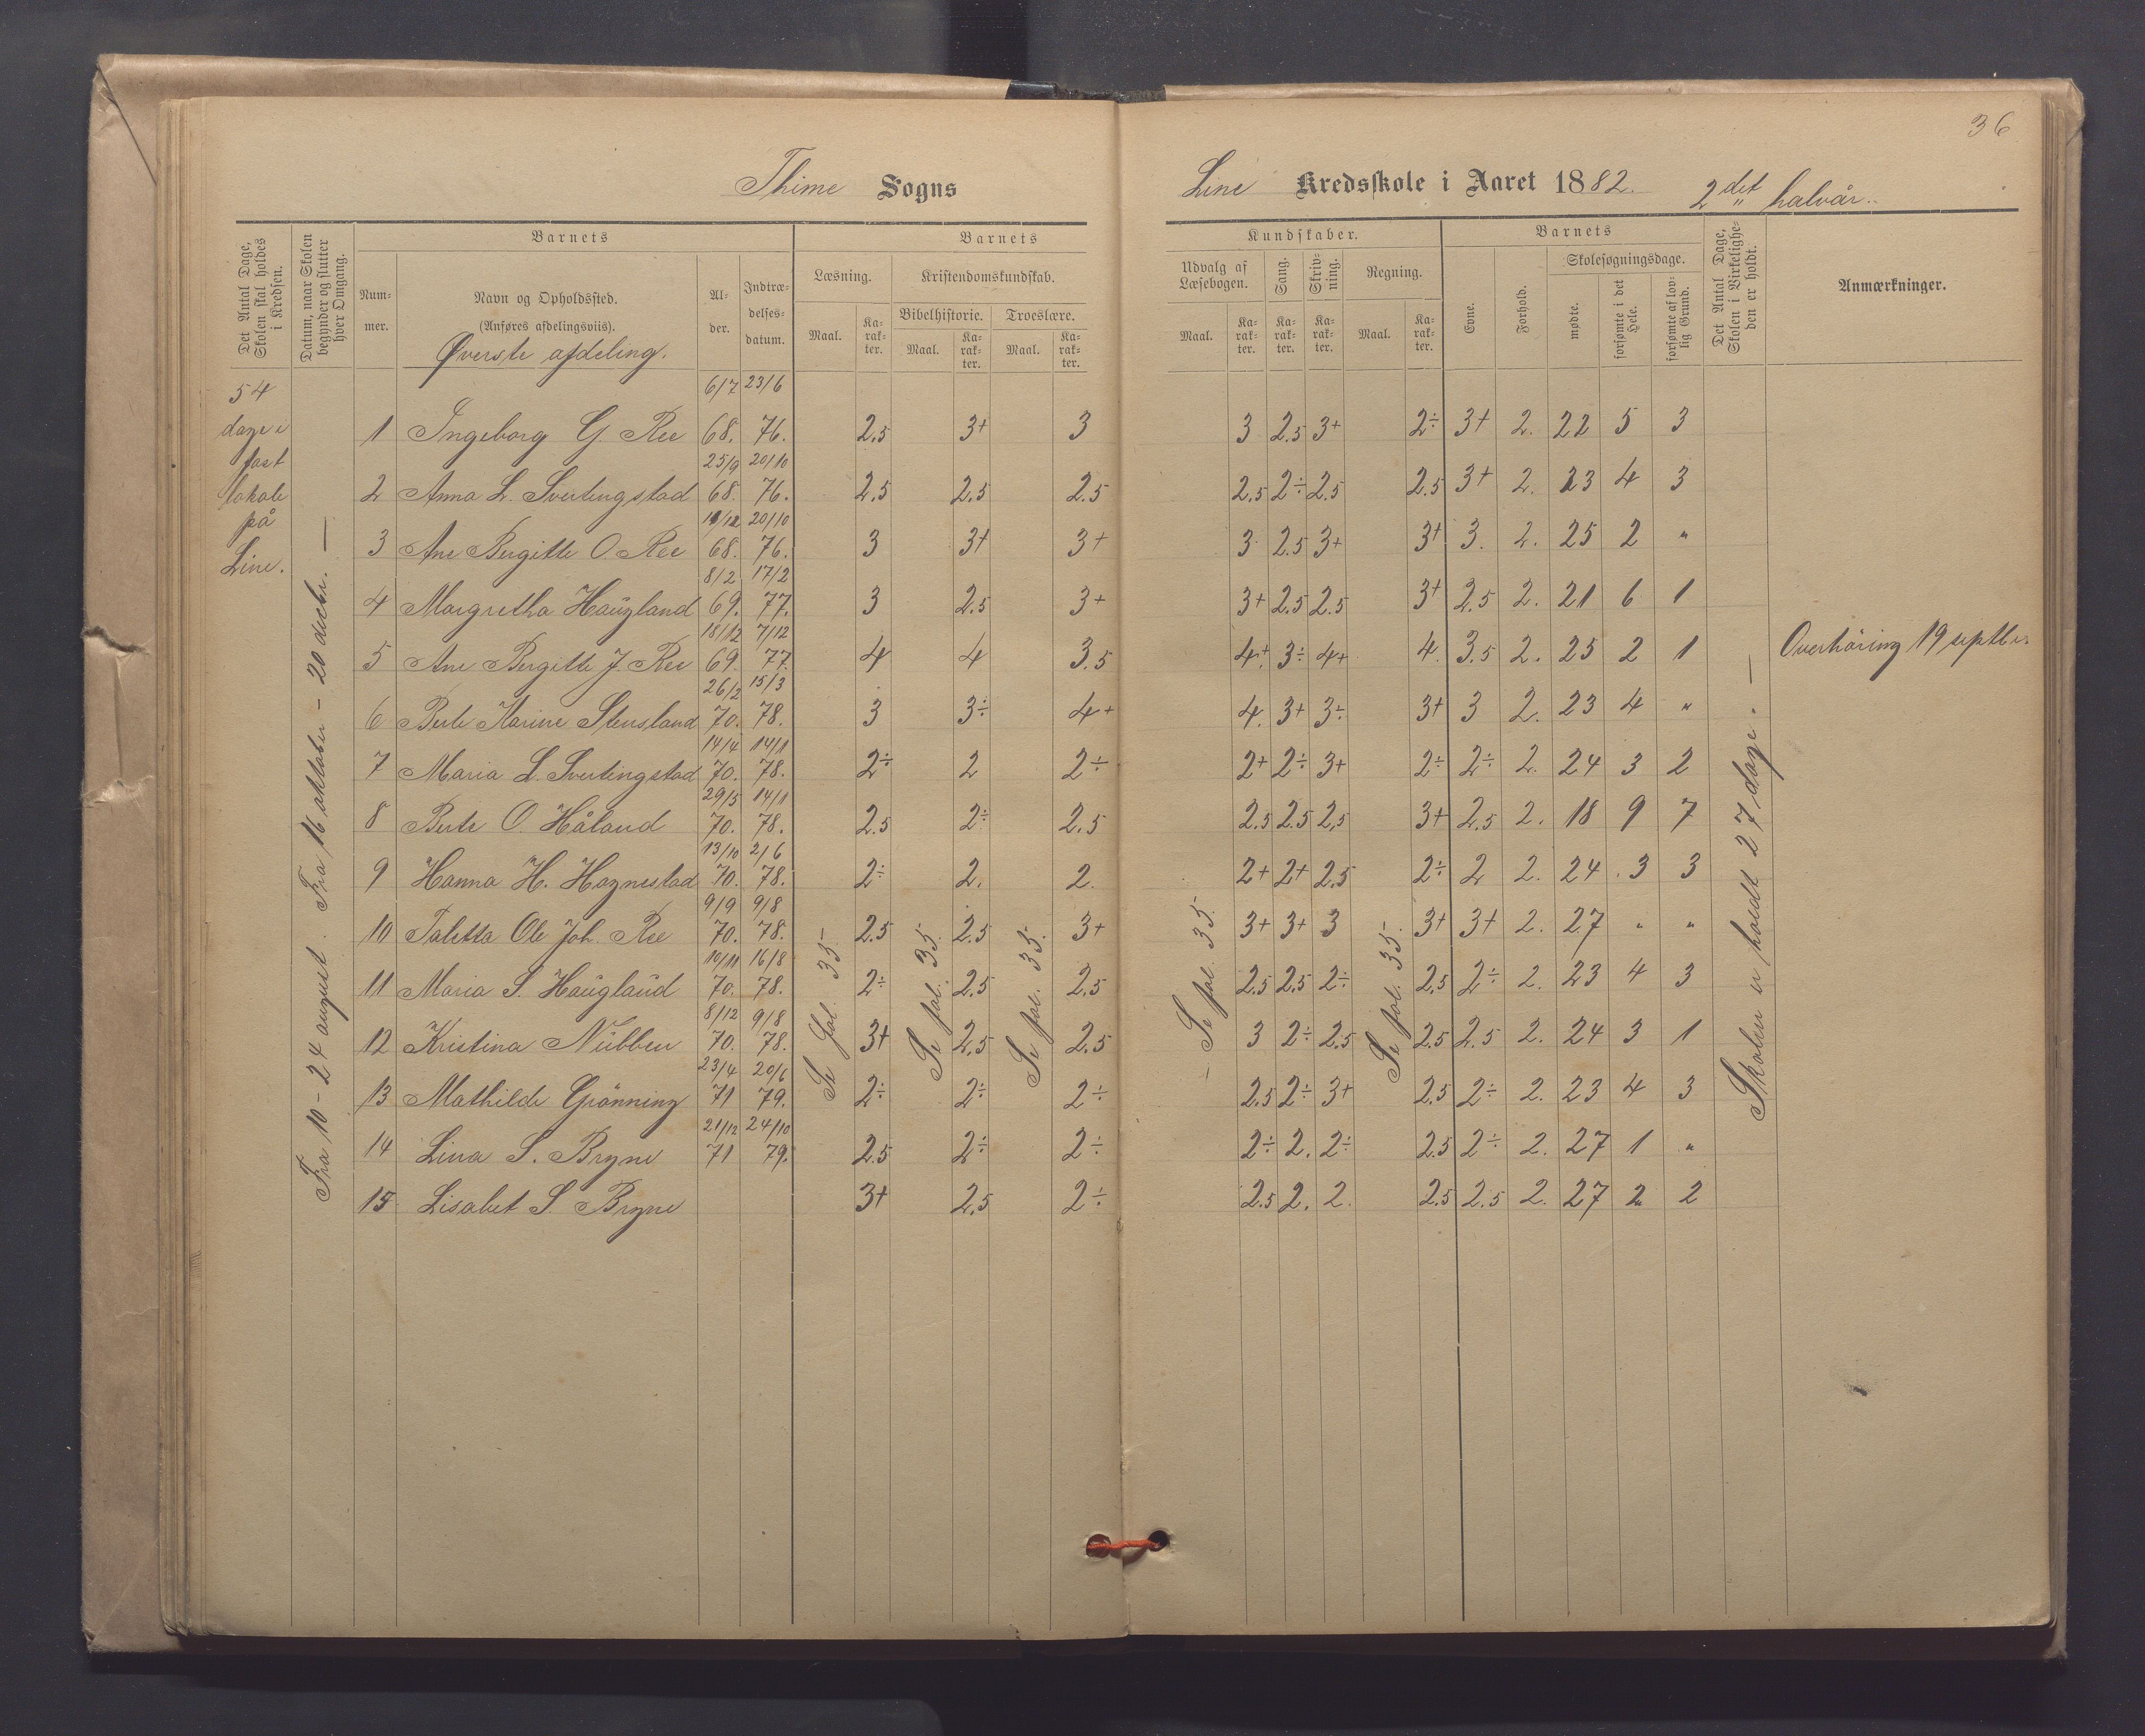 36
Thime Sogns
Line Kredsskole i Aaret 1882. 2det halvår.
Det Antal Dage, Skolen skal holdes i Kredsen.
Datum, naar Skolen begynder og slutter hver Omgang.
Barnets
Nummer.
Navn og Opholdssted.
(Anføres afdelingsviis).
Øverste afdeling.
Alder.
Indtrædelsesdatum.
Barnets
Læsning.
Maal.
Karakter.
Kristendomskundskab.
Bibelhistorie.
Maal.
Karakter.
Troeslære.
Maal.
Karakter.
Kundskaber.
Udvalg af Læsebogen.
Maal.
Karakter.
Sang.
Karakter.
Skrivning.
Karakter.
Regning.
Maal.
Karakter.
Barnets
Evne.
Forhold.
Skolesøgningsdage.
mødte.
forsømte i det Hele.
forsømte af lovlig Grund.
Det Antal Dage, Skolen i Virkeligheden er holdt.
Anmærkninger.
54
dage i
fast
lokale
på
Line.
Fra 10 - 24 august. Fra 16 oktober - 20 decbr. —
6/7 23/6
1 Ingeborg G. Ree 68. 76. 2.5 3+ 3 3 2.5 3+ 2÷ 3+ 2. 22 5 3
25/9 20/10
2 Anna L. Svertingstad 68. 76. 2.5 2.5 2.5 2.5 2÷ 2.5 2.5 3+ 2. 23 4 3
11/12 20/10
3 Ane Bergitte O. Ree 68. 76. 3 3+ 3+ 3 2.5 3+ 3+ 3. 2. 25 2 "
8/2 17/2
4 Margretha Haugland 69. 77. 3 2.5 3+ 3+ 2.5 2.5 3+ 2.5 2. 21 6 1
18/12 7/12
5 Ane Bergitte J. Ree 69. 77. 4 4 3.5 4+ 3÷ 4+ 4. 3.5 2. 25 2 1 Overhöring 19 septbr.
26/2 15/3
6 Berte Karine Stensland 70. 78. 3 3÷ 4+ 4. 3+ 3÷ 3+ 3 2. 23 4 "
14/4 14/1
7 Maria L. Svertingstad 70. 78. 2÷ 2 2÷ 2+ 2÷ 3+ 2÷ 2÷ 2. 24 3 2
29/5 14/1
8 Berte O. Håland 70. 78. 2.5 2÷ 2.5 2.5 2.5 2.5 3+ 2.5 2. 18 9 7
13/10 2/6
9 Hanna H. Hognestad 70. 78. 2÷ 2. 2. 2+ 2+ 2.5 2÷ 2 2. 24 3 3
9/9 9/8
10 Taletta Ole Joh. Ree 70. 78. 2.5 2.5 3+ 3+ 3+ 3 3+ 3+ 2. 27 " "
10/11 16/8
11 Maria S. Haugland 70. 78. 2÷ 2.5 2.5 2.5 2.5 2÷ 2.5 2÷ 2. 23 4 3
8/12 9/8
12 Kristina Nubben 70. 78. 3+ 2.5 2.5 3 2÷ 2.5 2.5 2.5 2. 24 3 1
23/4 20/6
13 Mathilde Grönning 71 79. 2÷ 2÷ 2÷ 2.5 2÷ 3+ 2.5 2÷ 2. 23 4 3
21/12 24/10
14 Lina S. Bryne 71 79. 2.5 2÷ 2÷ 2÷ 2. 2÷ 2.5 2÷ 2. 27 1 "
15 Lisabet S. Bryne 3+ 2.5 2÷ 2.5 2. 2. 2.5 2.5 2. 27 2 2
Se fol. 35.
Se fol. 35.
Se fol. 35.
Se fol. 35.
Se fol. 35.
Skolen er holdt 27 dage. —